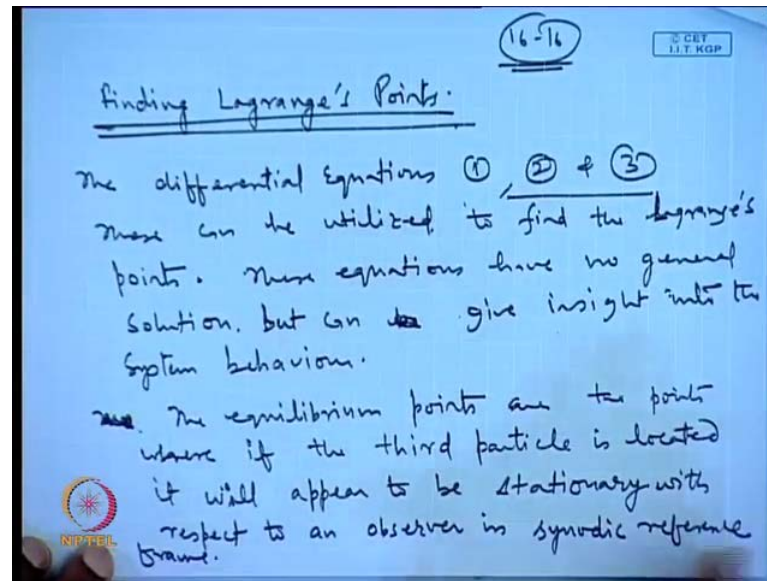 16-16
© CET
I.I.T. KGP
Finding Lagrange's Points.
The differential Equations ①, ② & ③
These can be utilized to find the Lagrange's
points. These equations have no general
solution. but can give insight into the
system behaviour.
The equilibrium points are the points
where if the third particle is located
it will appear to be stationary with
respect to an observer in synodic reference
frame.
NPTEL